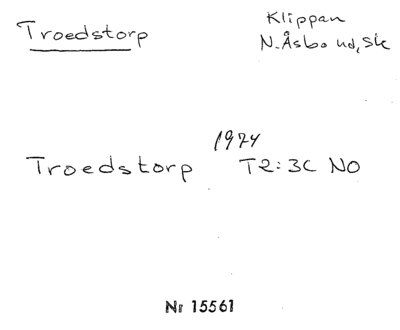 Troedstorp
Klippan
N. Åsbo hd, Sk
1974
Troedstorp T2:3C NO
Nr 15561